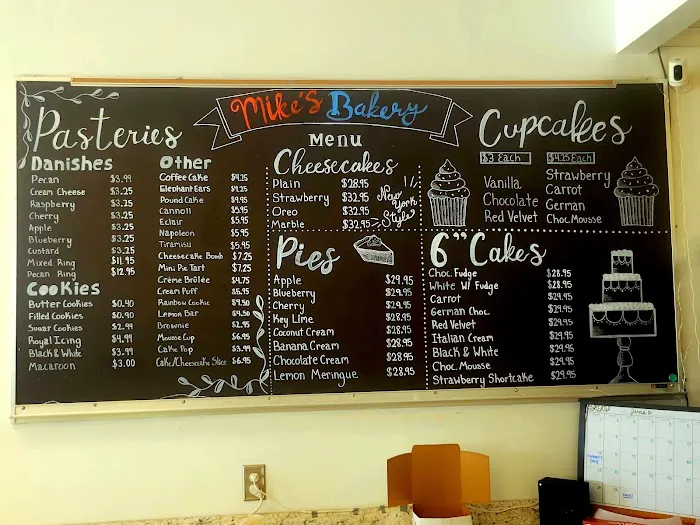 Mike's Bakery
Menu
Pasteries
Danishes
Pecan $3.99
Cream Cheese $3.25
Raspberry $3.25
Cherry $3.25
Apple $3.25
Blueberry $3.25
Custard $3.25
Mixed Ring $11.95
Pecan Ring $12.95
Cookies
Butter Cookies $0.40
Filled Cookies $0.90
Sugar Cookies $2.99
Royal Icing $4.99
Black & White $3.99
Macaroon $3.00
Other
Coffee Cake $4.25
Elephant Ears $4.25
Pound Cake $4.95
Cannoli $5.95
Eclair $5.95
Napoleon $5.95
Tiramisu $5.95
Cheesecake Bomb $7.25
Mini Pie Tart $7.25
Crème Brûlée $4.75
Cream Puff $6.95
Rainbow Cookie $4.50
Lemon Bar $4.50
Brownie $2.95
Mousse Cup $6.95
Cake Pop $3.99
Cake/Cheesecake Slice $6.95
Cheesecakes
Plain $28.95
Strawberry $32.95
Oreo $32.95
Marble $32.95
New York Style
Pies
Apple $29.95
Blueberry $29.95
Cherry $29.95
Key Lime $28.95
Coconut Cream $28.95
Banana Cream $28.95
Chocolate Cream $28.95
Lemon Meringue $28.95
Cupcakes
$3 Each
Vanilla
Chocolate
Red Velvet
$4.25 Each
Strawberry
Carrot
German
Choc. Mousse
6" Cakes
Choc. Fudge $28.95
White W/ Fudge $28.95
Carrot $29.95
German Choc. $29.95
Red Velvet $29.95
Italian Cream $29.95
Black & White $29.95
Choc. Mousse $29.95
Strawberry Shortcake $29.95